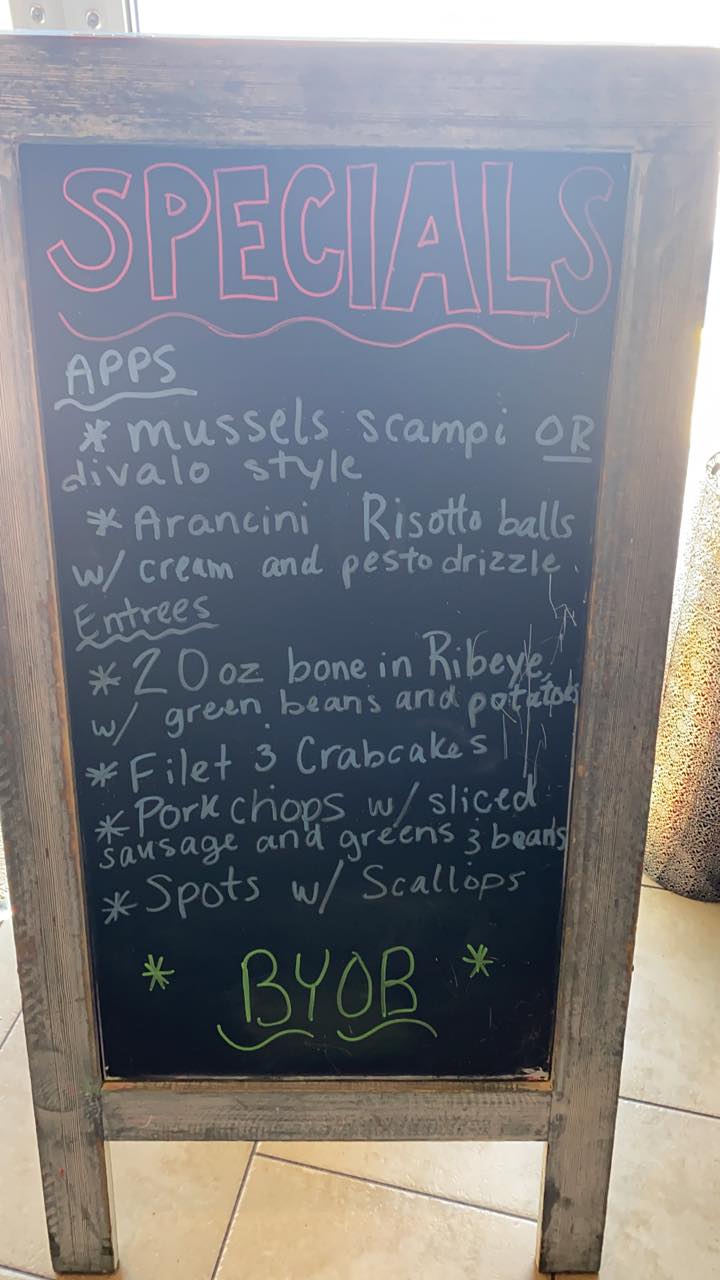 SPECIALS
APPS
* mussels scampi OR
divalo style
* Arancini Risotto balls
w/ cream and pesto drizzle.
Entrees
* 20oz bone in Ribeye
w/ green beans and potatoes
* Filet 3 Crabcakes
* Pork chops w/ sliced
sausage and greens 3 beans
* Spots w/ Scallops
* BYOB *